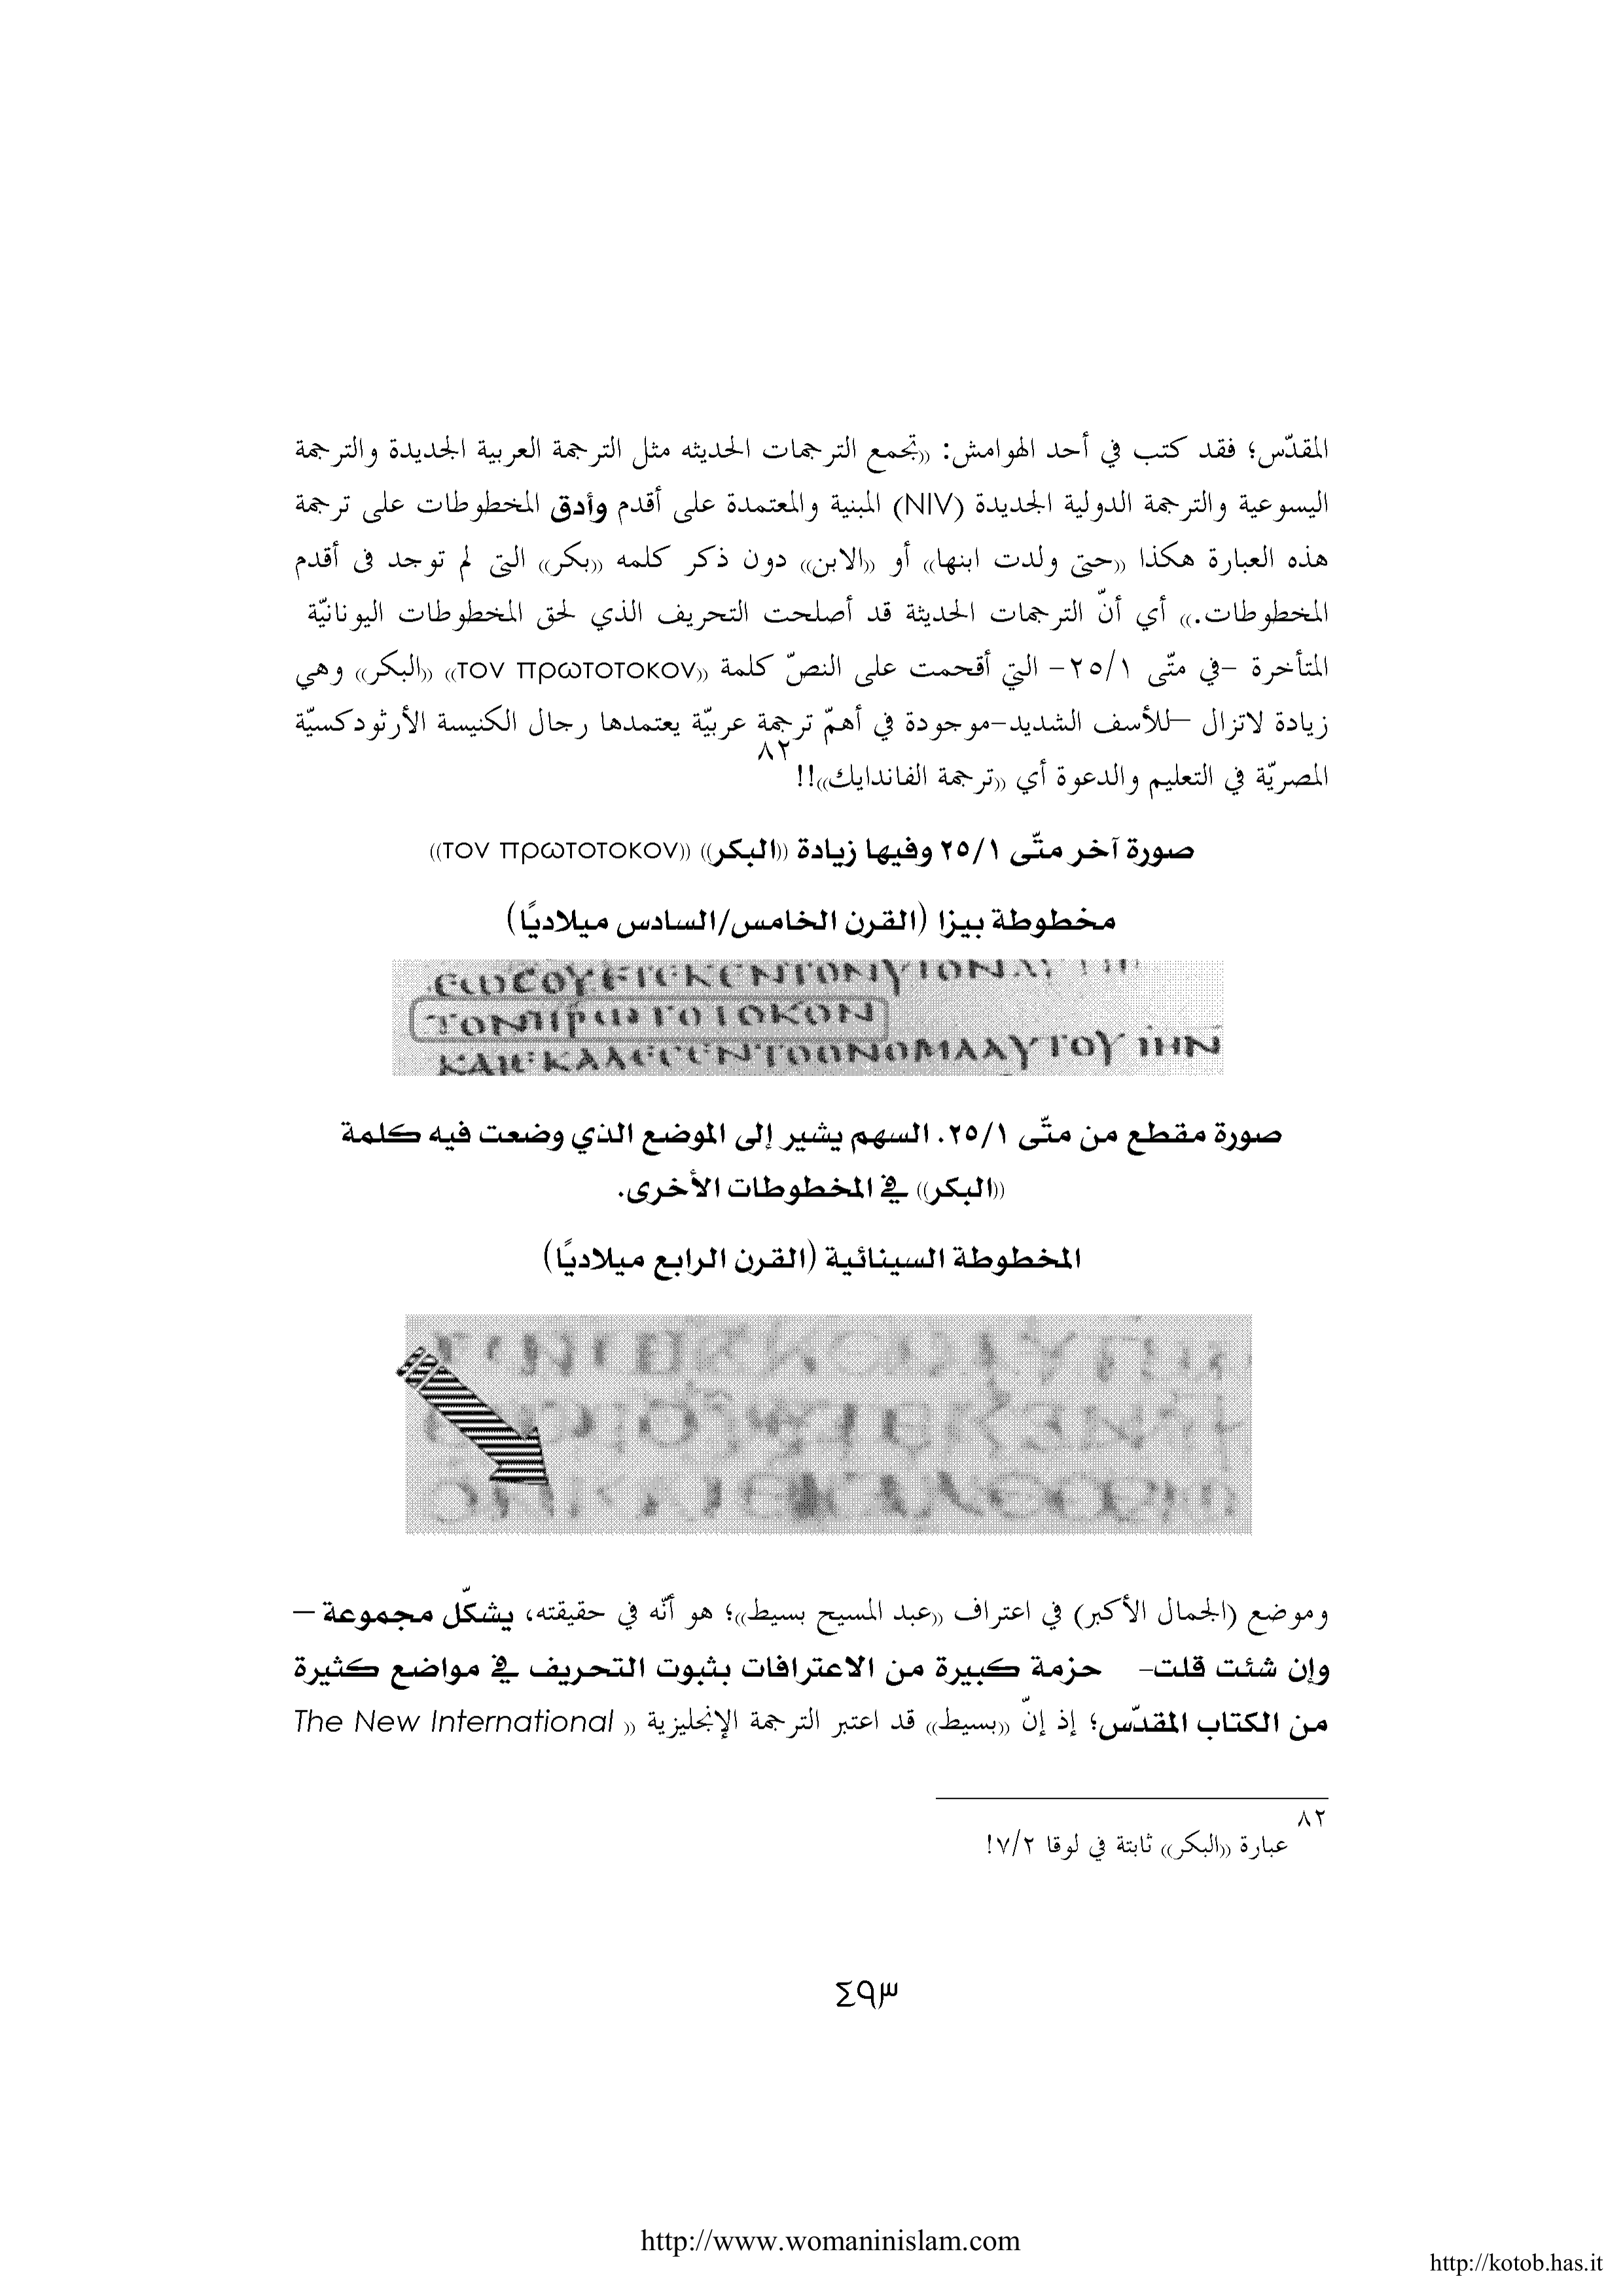 المقدّس؛ فقد كتب في أحد الهوامش: ((تجمع الترجمات الحديثه مثل الترجمة العربية الجديدة والترجمة
اليسوعية والترجمة الدولية الجديدة (NIV) المبنية والمعتمدة على أقدم وأدق المخطوطات على ترجمة
هذه العبارة هكذا ((حتى ولدت ابنها)) أو ((الابن)) دون ذكر كلمه ((بكر)) التى لم توجد فى أقدم
المخطوطات.)) أي أنّ الترجمات الحديثة قد أصلحت التحريف الذي لحق المخطوطات اليونانيّة
المتأخرة -في متّى ٢٥/١- التي أقحمت على النصّ كلمة ((τον πρωτοτοκον)) ((البكر)) وهي
زيادة لاتزال –للأسف الشديد-موجودة في أهمّ ترجمة عربيّة يعتمدها رجال الكنيسة الأرثودكسيّة
المصريّة في التعليم والدعوة أي ((ترجمة الفاندايك))!! ٨٢
صورة آخر متّى ٢٥/١ وفيها زيادة ((البكر)) ((τον πρωτοτοκον))
مخطوطة بيزا (القرن الخامس/السادس ميلاديًا)
ΕΩCΟΥΕΤΕΚΕΝΤΟΝΥΙΟΝΑΥΤΗ
ΤΟΝΠΡΩΤΟΤΟΚΟΝ
ΚΑΙΕΚΑΛΕCΕΝΤΟΟΝΟΜΑΑΥΤΟΥΙΗΝ
صورة مقطع من متّى ٢٥/١. السهم يشير إلى الموضع الذي وضعت فيه كلمة
((البكر)) في المخطوطات الأخرى.
المخطوطة السينائية (القرن الرابع ميلاديًا)
وموضع (الجمال الأكبر) في اعتراف ((عبد المسيح بسيط))؛ هو أنّه في حقيقته، يشكّل مجموعة –
وإن شئت قلت- حزمة كبيرة من الاعترافات بثبوت التحريف في مواضع كثيرة
من الكتاب المقدّس؛ إذ إنّ ((بسيط)) قد اعتبر الترجمة الإنجليزية (( The New International
٨٢ عبارة ((البكر)) ثابتة في لوقا ٧/٢!
٤٩٣
http://www.womaninislam.com
http://kotob.has.it